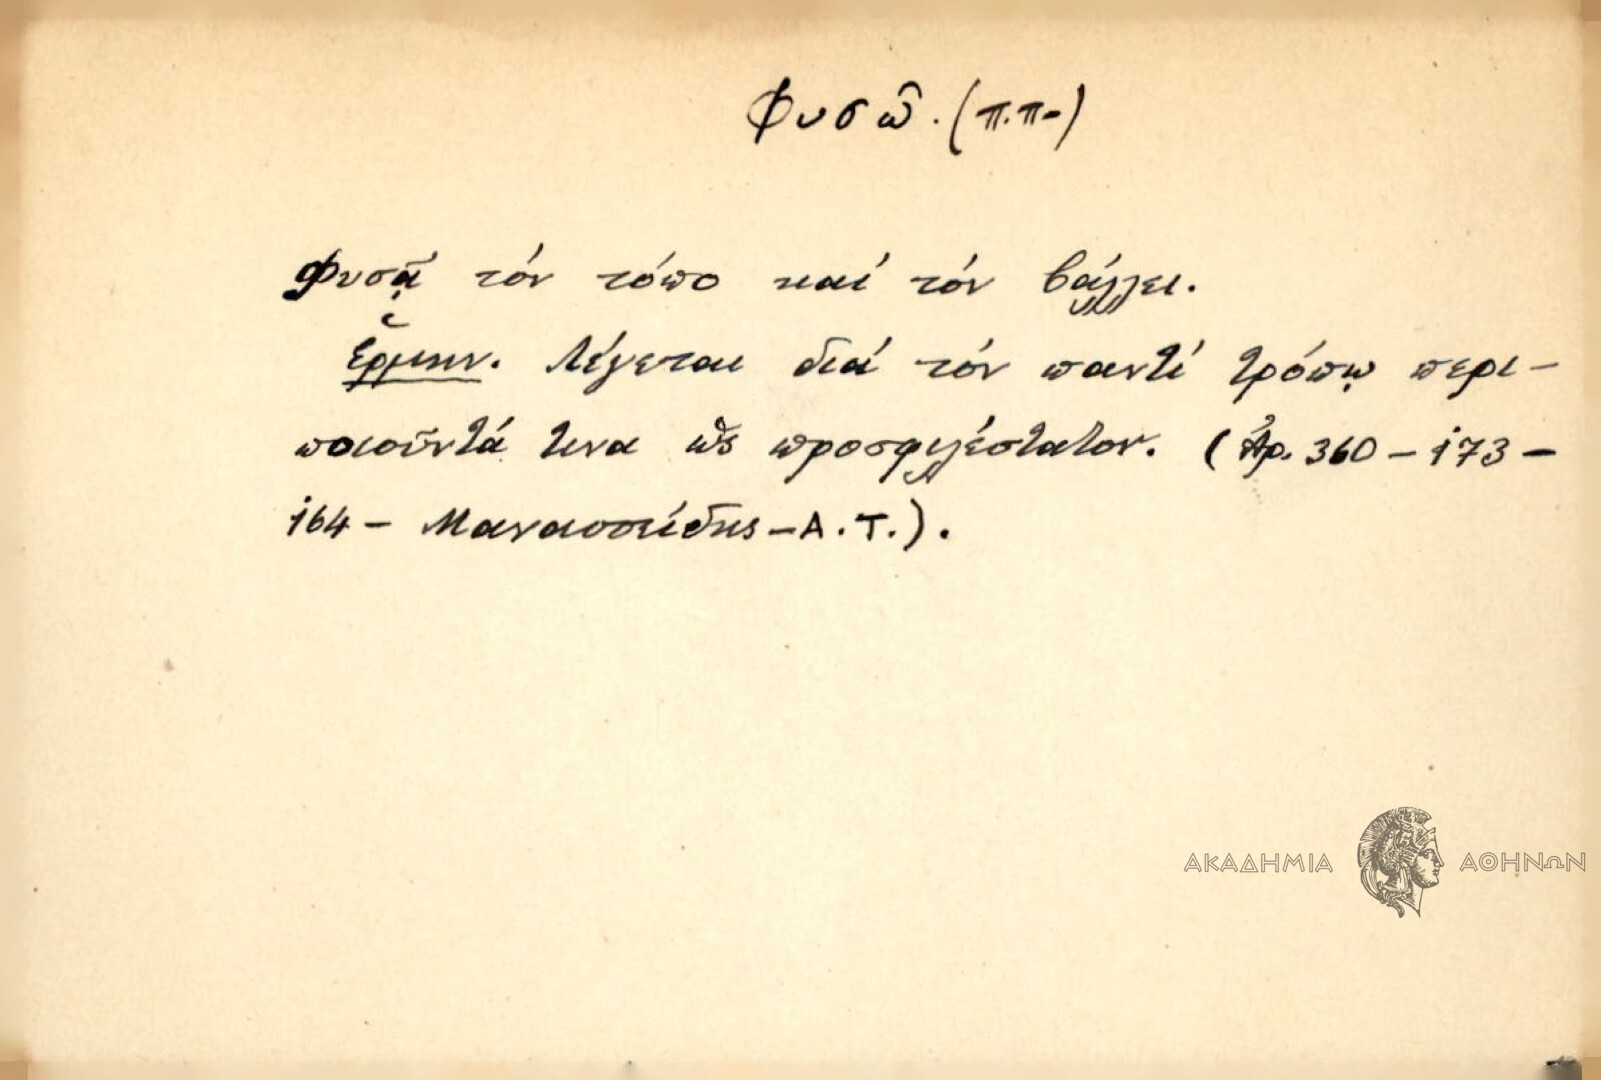 Φυσῶ. (π.π-)
Φυσᾷ τόν τόπο καί τόν βάλλει.
Ἑρμην. Λέγεται διά τόν παντί τρόπῳ περι-
ποιοῦντά τινα ὡς προσφιλέστατον. (Ἀρ. 360 - 173 -
164 - Μανασσείδης - Α.Τ.).
ΑΚΑΔΗΜΙΑ ΑΘΗΝΩΝ